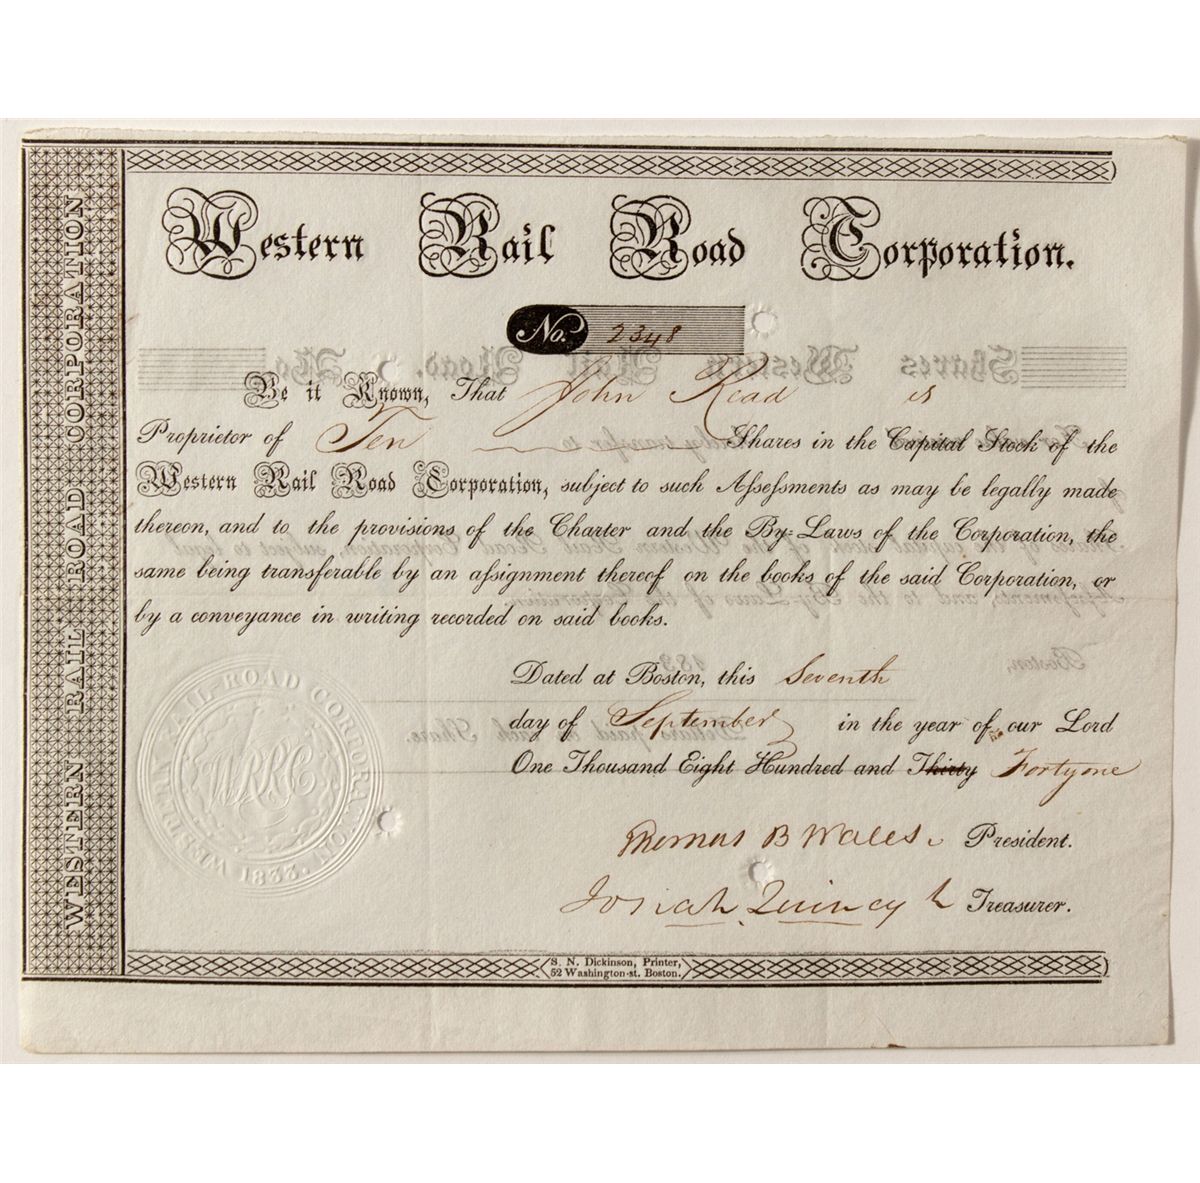 WESTERN RAIL ROAD CORPORATION
Western Rail Road Corporation.
No. 2348
Be it Known, That John Read is
Proprietor of Ten Shares in the Capital Stock of the
Western Rail Road Corporation, subject to such Assessments as may be legally made
thereon, and to the provisions of the Charter and the By-Laws of the Corporation, the
same being transferable by an assignment thereof on the books of the said Corporation, or
by a conveyance in writing recorded on said books.
Dated at Boston, this Seventh
day of September in the year of our Lord
One Thousand Eight Hundred and Thirty Fortyone
Thomas B Wales President.
Josiah Quincy Jr Treasurer.
WESTERN RAIL-ROAD CORPORATION. 1833.
WRRC
S. N. Dickinson, Printer,
52 Washington-st. Boston.